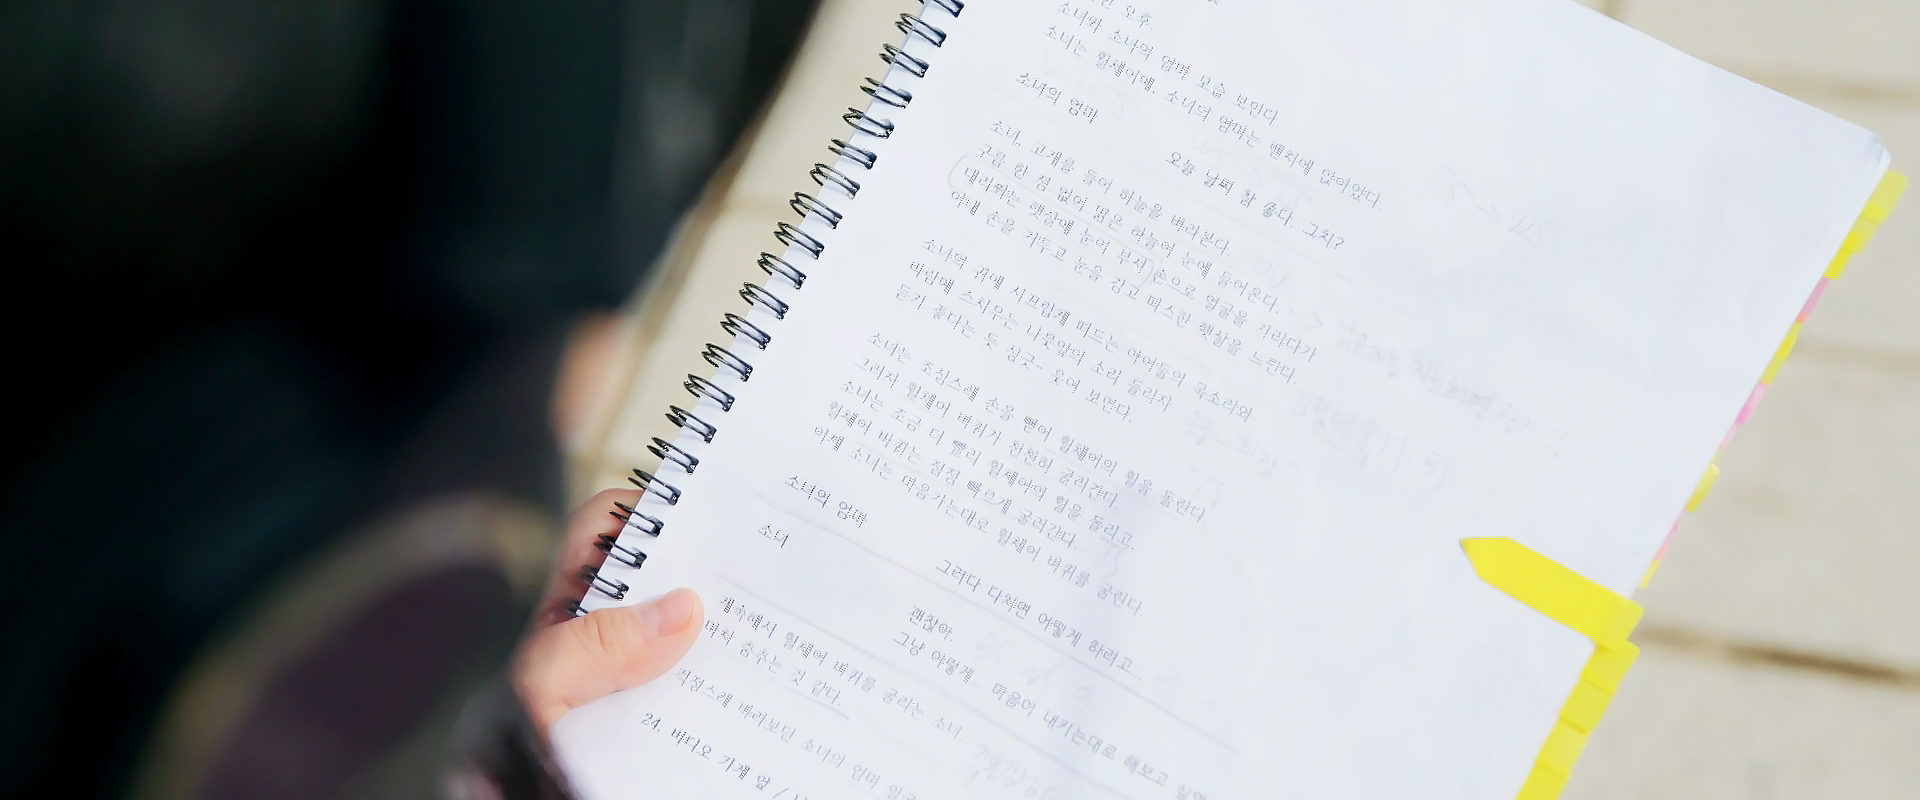 소녀와 소녀의 엄마 모습 보인다
소녀는 휠체어에, 소녀의 엄마는 벤치에 앉아있다.
소녀의 엄마
오늘 날씨 참 좋다. 그치?
소녀, 고개를 들어 하늘을 바라본다
구름 한 점 없이 맑은 하늘이 눈에 들어온다.
내리쬐는 햇살에 눈이 부셔 손으로 얼굴을 가리다가
이내 손을 거두고 눈을 감고 따스한 햇살을 느낀다.
소녀의 귀에 시끄럽게 떠드는 아이들의 목소리와
바람에 스치우는 나뭇잎의 소리 들리자
듣기 좋다는 듯 싱긋- 웃어 보인다.
소녀는 조심스레 손을 뻗어 휠체어의 휠을 돌린다.
그러자 휠체어 바퀴가 천천히 굴러간다.
소녀는 조금 더 빨리 휠체어의 휠을 돌리고.
휠체어 바퀴는 점점 빠르게 굴러간다.
이제 소녀는 마음가는대로 휠체어 바퀴를 굴린다
소녀의 엄마
그러다 다치면 어떻게 하려고..
소녀
괜찮아.
그냥 이렇게.. 마음이 내키는대로 해보고 싶었
계속해서 휠체어 바퀴를 굴리는 소녀.
마치 춤추는 것 같다.
걱정스레 바라보던 소녀의 엄마
24. 비디오 가게 앞 /